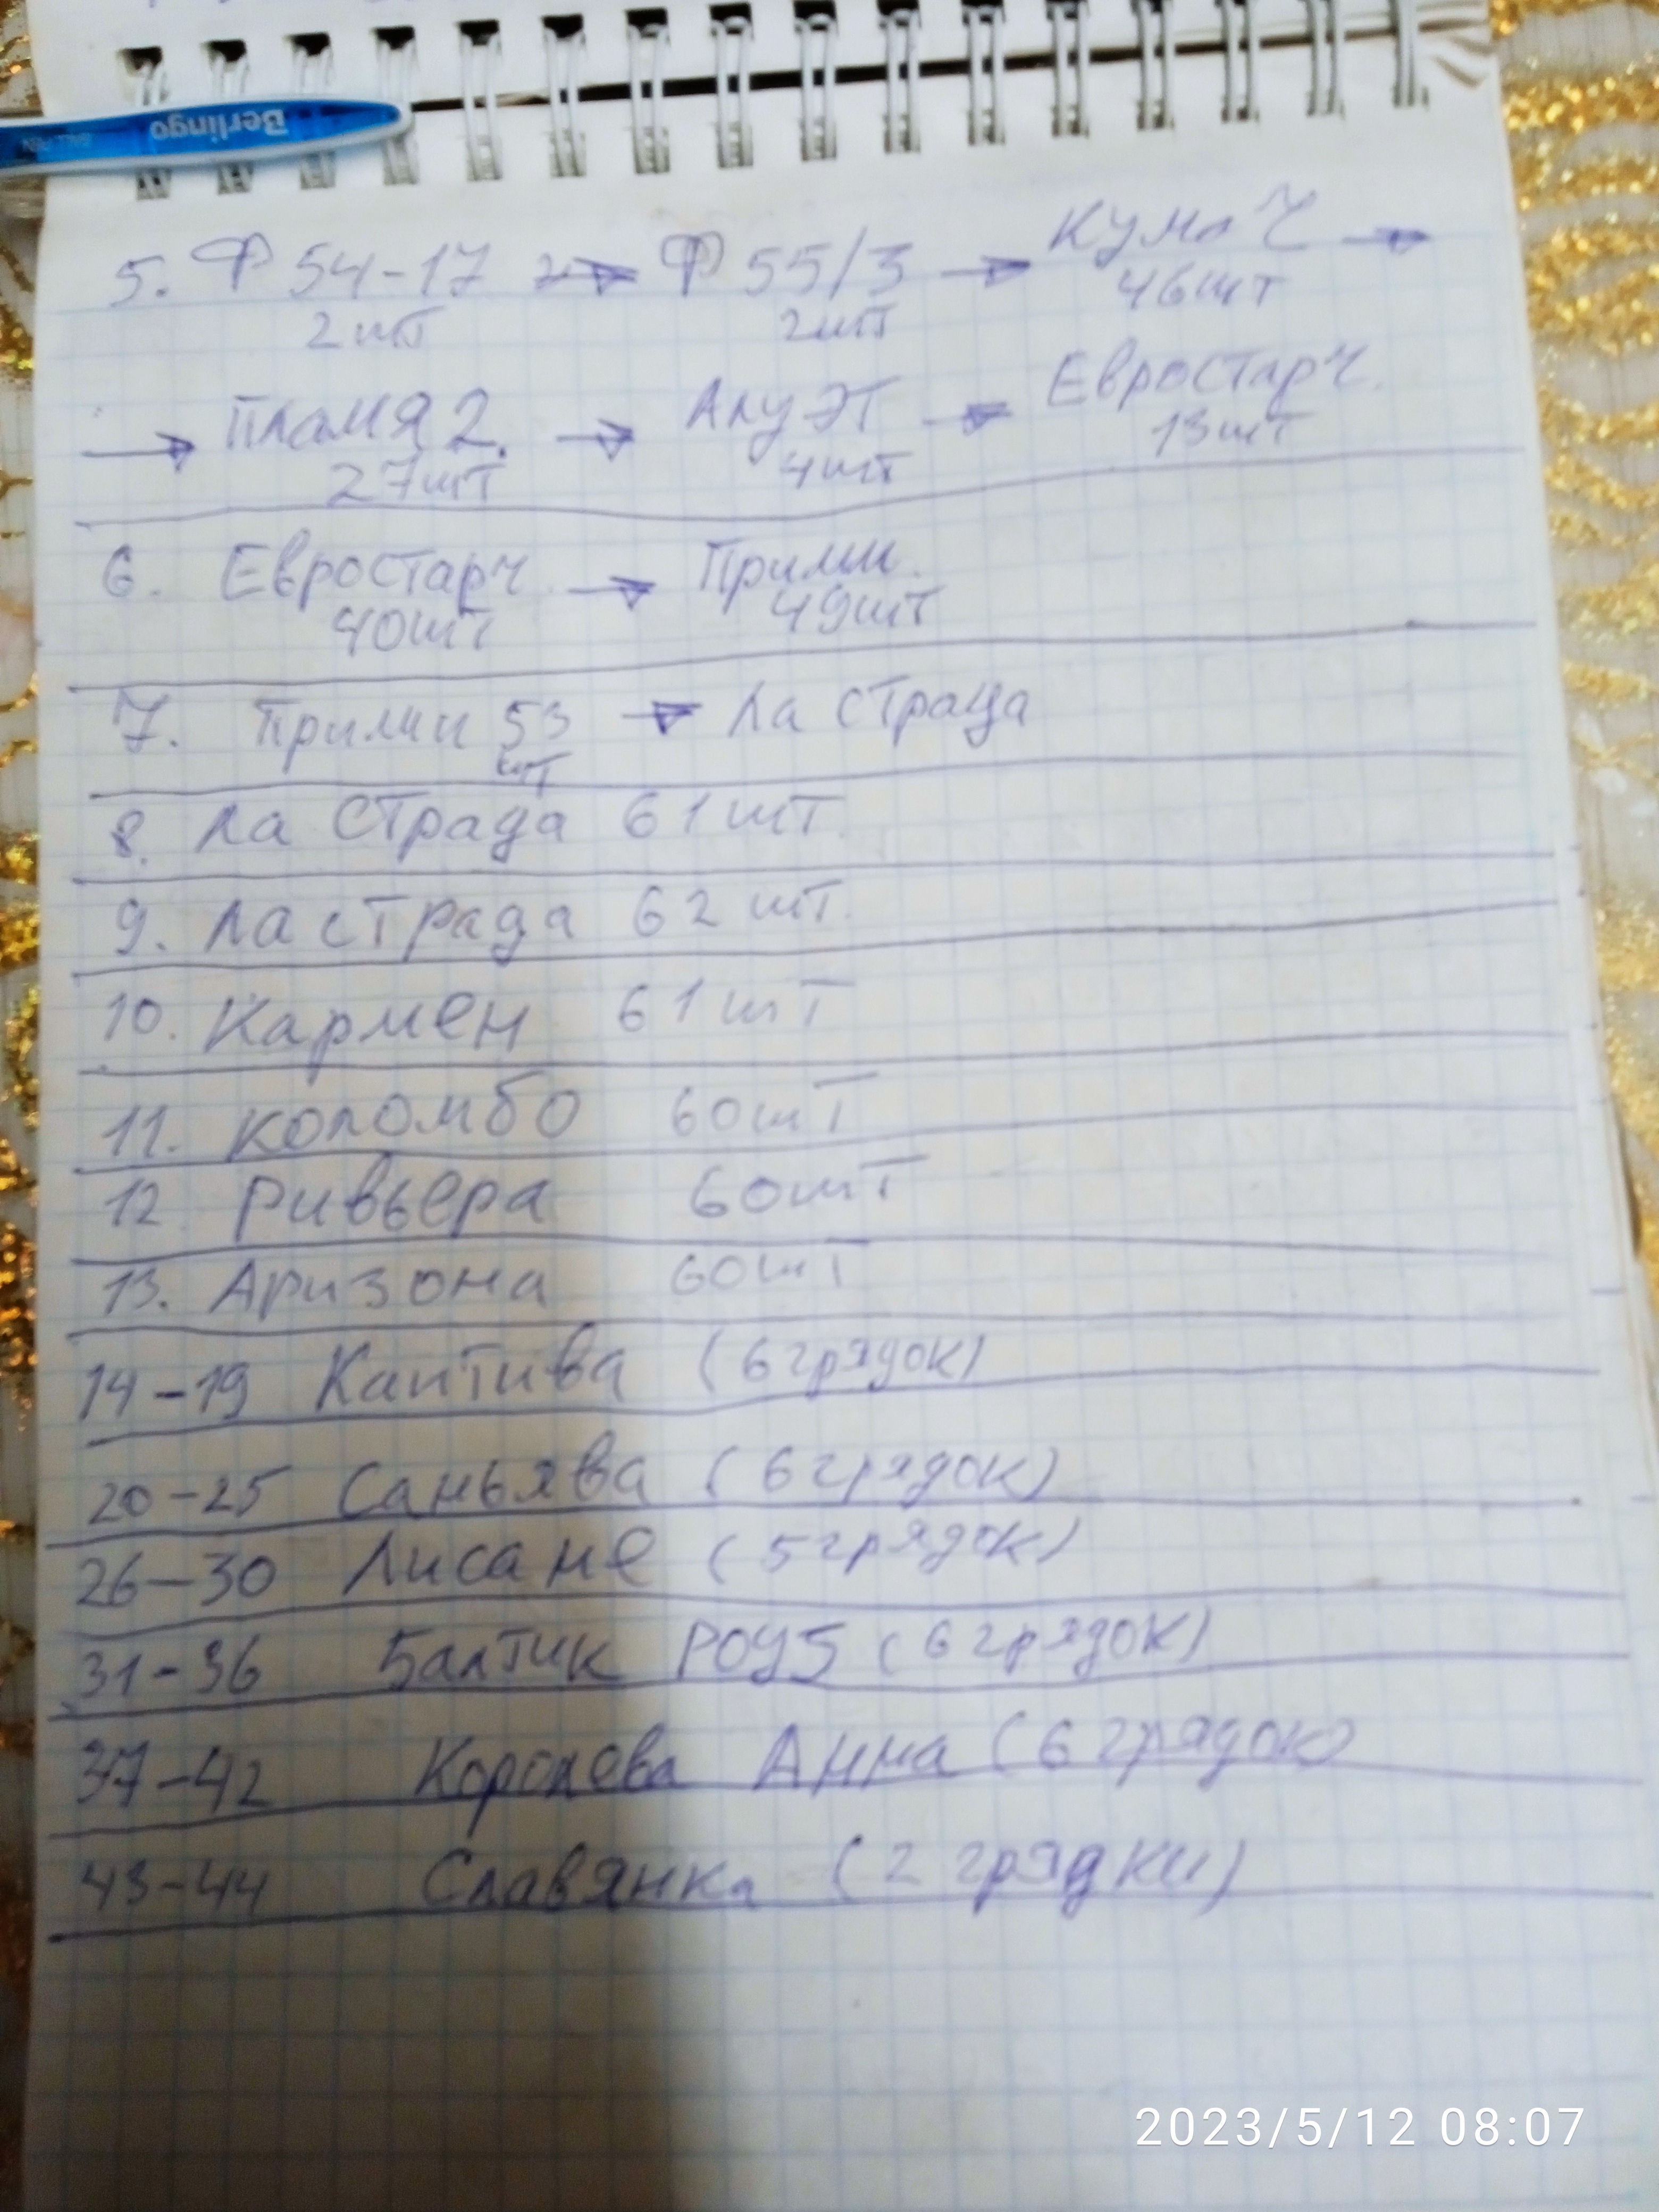 Berlingo
5. Ф 54-17 → Ф 55/3 → Кумач →
2шт 2шт 46шт
→ Пламя 2. → Алуэт → Евростарч.
27шт 4шт 13шт
6. Евростарч → Прими.
40шт 49шт
7. Прими 53 → Ла страда
шт
8. Ла Страда 61 шт.
9. Ла страда 62 шт.
10. Кармен 61 шт
11. Коломбо 60шт
12. Ривьера 60шт
13. Аризона 60шт
14-19 Каптива (6 грядок)
20-25 Саньява (6 грядок)
26-30 Лисане (5 грядок)
31-36 Балтик РОУЗ (6 грядок)
37-42 Королева Анна (6 грядок)
43-44 Славянка (2 грядки)
2023/5/12 08:07